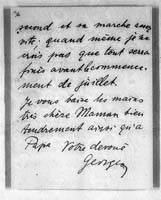 mond et sa marche aus
sité; quand même je n'
crois pas que tout sera
fini avant commence-
ment de juillet.
Je vous baise les mains
très chère Maman bien
tendrement ainsi qu'à
Papa Votre dévoué
Georges